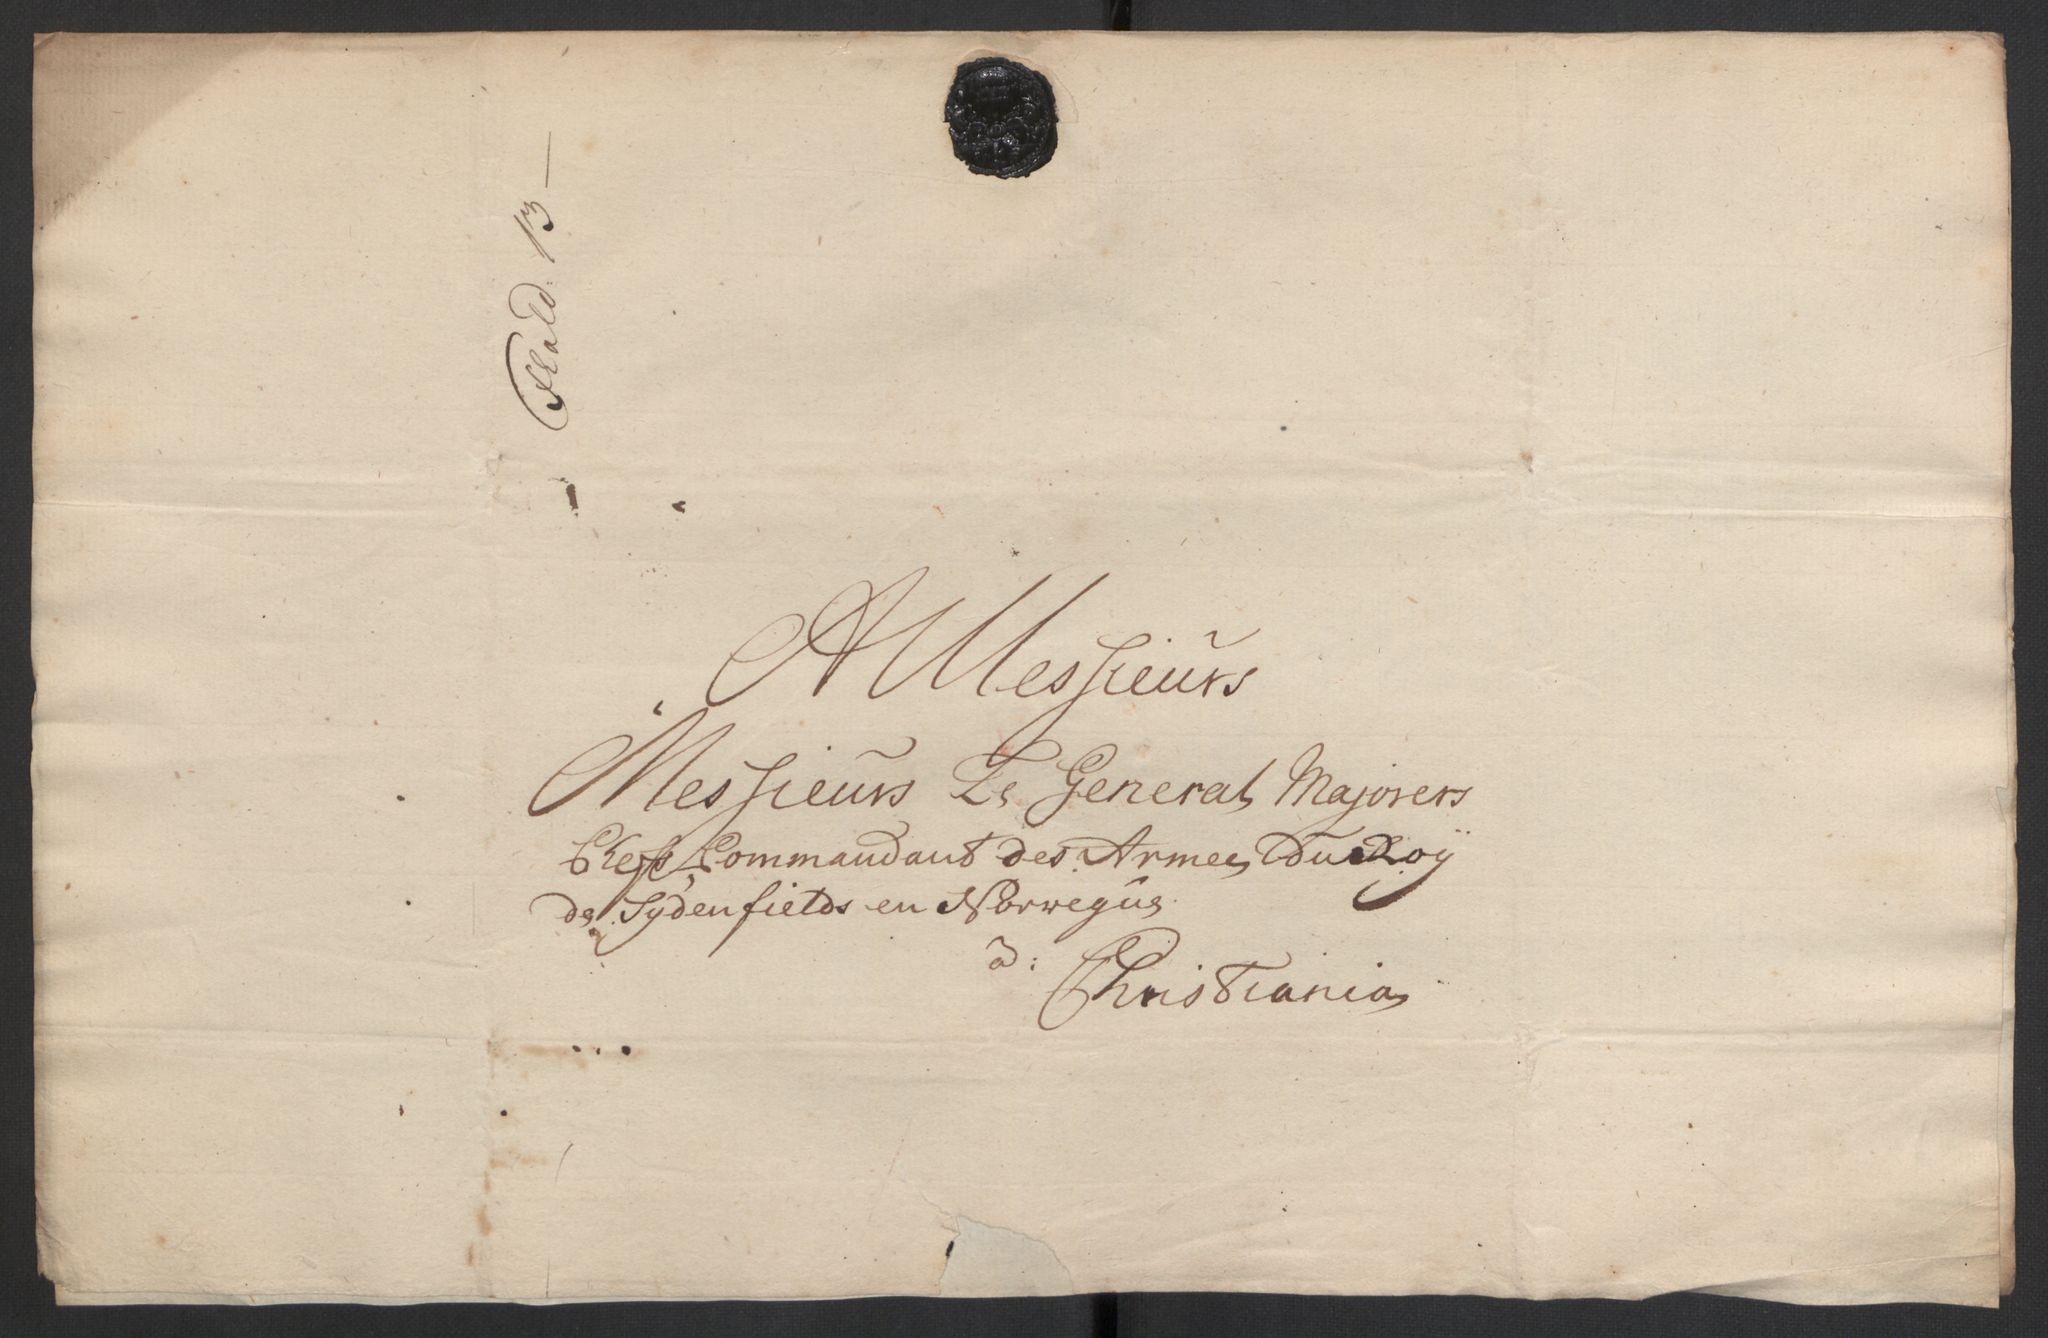 Frald: 13 —
A Messieurs
Messieurs Le General Majorers
Chefs Commandant des Armee Du Roÿ
de Sydenfields en Norwegue
a: Christiania